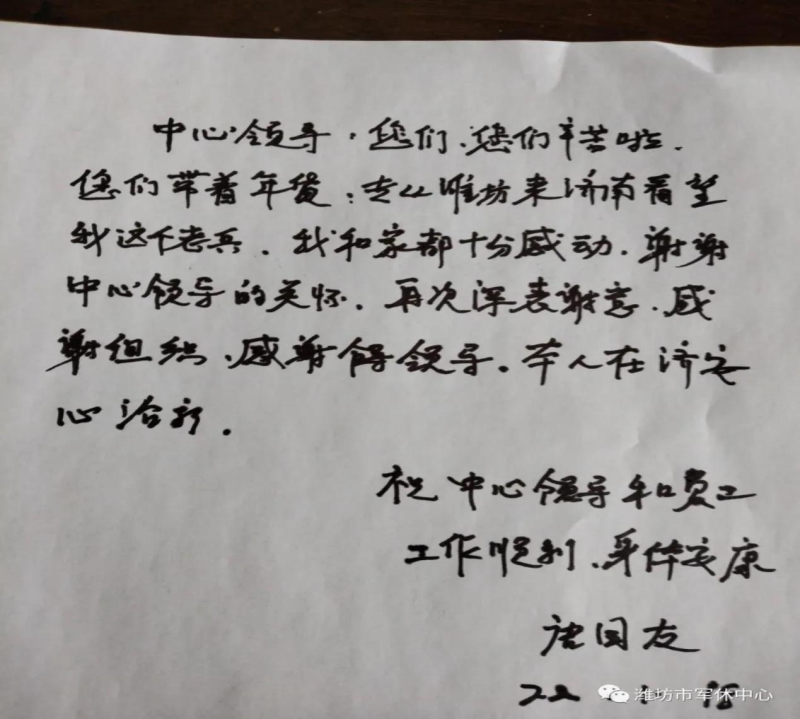 中心领导,您们、您们辛苦啦.
您们带着年货,专从潍坊来济南看望
我这个老兵.我和家都十分感动.谢谢
中心领导的关怀.再次深表谢意.感
谢组织、感谢 领导。本人在济安
心治疗.
祝中心领导和员工
工作顺利、身体安康
唐国友
22
潍坊市军休中心